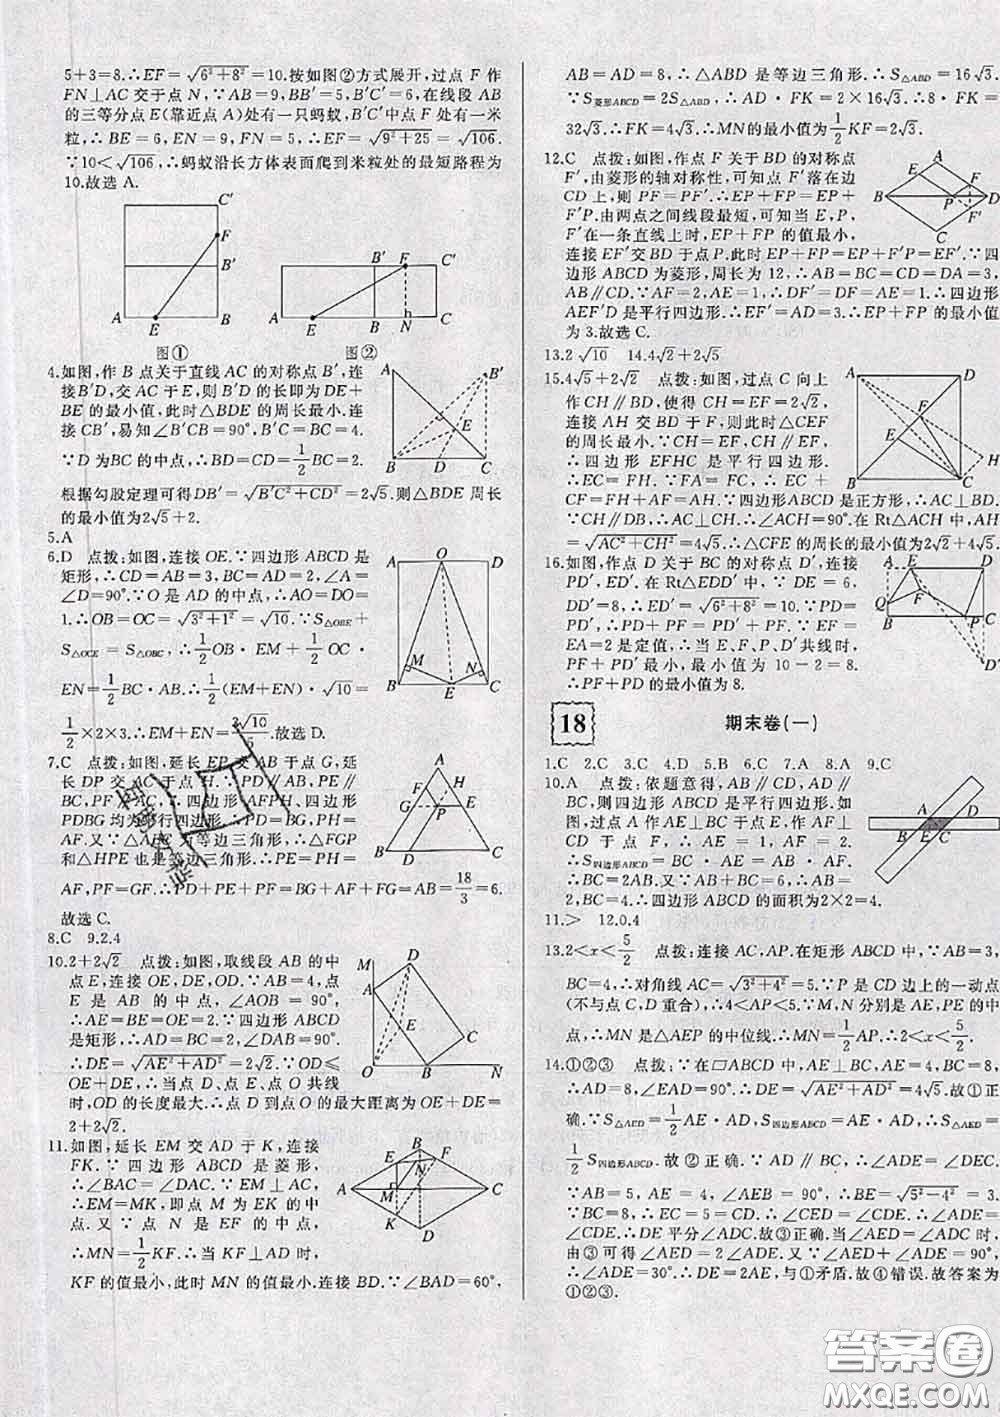 5+3=8.∴EF=√(6²+8²)=10.按如图②方式展开,过点 F 作
FN⊥AC 交于点 N,∵AB=9,BB′=5,B′C′=6,在线段 AB
的三等分点 E(靠近点 A)处有一只蚂蚁,棱 B′C′中点 F 处有一米
粒,∴BE=6,EN=9,FN=5,∴EF=√(9²+25)=√106.
∵10<√106,∴蚂蚁沿长方体表面爬到米粒处的最短路程为
10.故选 A.
C′
F
B′
A E B
图①
B′ F C′
A E N
图②
4.如图,作 B 点关于直线 AC 的对称点 B′,连
接 B′D,交 AC 于 E,则 B′D 的长即为 DE+
BE 的最小值,此时△BDE 的周长最小.连
接 CB′,易知∠B′CB=90°,B′C=BC=4.
∵D 为BC 的中点,∴BD=CD=1/2 BC=2.
根据勾股定理可得DB′=√(B′C²+CD²)=2√5.则△BDE 周长
的最小值为2√5+2.
A B′
E
B D C
5.A
6.D 点拨:如图,连接 OE.∵四边形 ABCD 是
矩形,∴CD=AB=3,BC=AD=2,∠A=
∠D=90°.∵O 是 AD 的中点,∴AO=DO=
1.∴OB=OC=√(3²+1²)=√10.∵S△OBE+
S△OCE=S△OBC,∴1/2 OB·EM+1/2 OC·
EN=1/2 BC·AB.∴1/2(EM+EN)·√10=
1/2×2×3.∴EM+EN=3√10/5.故选 D.
A O D
M N
B E C
7.C 点拨:如图,延长 EP 交 AB 于点 G,延
长 DP 交 AC 于点 H.∵PD∥AB,PE∥
BC,PF∥AC,∴四边形 AFPH、四边形
PDBG 均为平行四边形.∴PD=BG,PH=
AF.又∵△ABC 为等边三角形,∴△FGP
和△HPE 也是等边三角形.∴PE=PH=
AF,PF=GF.∴PD+PE+PF=BG+AF+FG=AB=18/3=6.
故选 C.
A
F H
G P E
B D C
8.C 9.2.4
10.2+2√2 点拨:如图,取线段 AB 的中
点 E,连接 OE,DE,OD.∵AB=4,点
E 是 AB 的中点,∠AOB=90°,
∴AE=BE=OE=2.∵四边形 ABCD
是矩形,∴AD=BC=2,∠DAB=90°.
∴DE=√(AE²+AD²)=2√2.∵OD≤
OE+DE,∴当点 D、点 E、点 O 共线
时,OD 的长度最大.∴点 D 到点 O 的最大距离为 OE+DE=
2+2√2.
D
A
E C
O B N
11.如图,延长 EM 交 AD 于 K,连接
FK.∵四边形 ABCD 是菱形,
∴∠BAC=∠DAC.∵EM⊥AC,
∴EM=MK,即点 M 为 EK 的中
点.又∵点 N 是 EF 的中点,
∴MN=1/2 KF.∴当 KF⊥AD 时,
KF 的值最小,此时 MN 的值最小.连接 BD.∵∠BAD=60°,
B
E F
N
A M C
K
D
BA=AD=8,∴△ABD 是等边三角形.∴S△ABD=16√3.
∵S菱形ABCD=2S△ABD,∴AD·FK=2×16√3.∴8·FK=
32√3.∴FK=4√3.∴MN的最小值为1/2 KF=2√3.
12.C 点拨:如图,作点 F 关于 BD 的对称点
F′,由菱形的轴对称性,可知点 F′落在边
CD 上,则 PF=PF′.∴EP+FP=EP+
F′P.由两点之间线段最短,可知当 E,P,
F′在一条直线上时,EP+FP 的值最小,
连接 EF′交 BD 于点 P.此时 EP+FP=EP+F′P=EF′.∵四
边形 ABCD 为菱形,周长为 12,∴AB=BC=CD=DA=3,
AB∥CD.∵AF=2,AE=1,∴DF′=DF=AE=1.∴四边形
AEF′D 是平行四边形.∴EF′=AD=3.∴EP+FP的最小值
为 3.故选 C.
A
E F
B P D
F′
C
13.2√10 14.4√2+2√5
15.4√5+2√2 点拨:如图,过点 C 向上
作 CH∥BD,使得 CH=EF=2√2,
连接 AH 交 BD 于 F,则此时△CEF
的周长最小.∵CH=EF,CH∥EF,
∴四边形 EFHC 是平行四边形.
∴EC=FH.∵FA=FC,∴EC+
CF=FH+AF=AH.∵四边形ABCD 是正方形,∴AC⊥BD.
∵CH∥DB,∴AC⊥CH.∴∠ACH=90°.在 Rt△ACH 中,AH
=√(AC²+CH²)=4√5.∴△CFE 的周长的最小值为2√2+4√5.
A D
F
E H
B C
16.如图,作点 D 关于 BC 的对称点 D′,连接
PD′,ED′.在 Rt△EDD′中,∵DE=6,
DD′=8,∴ED′=√(6²+8²)=10.∵PD=
PD′,∴PF+PD=PF+PD′.∵EF=
EA=2 是定值,∴当 E、F、P、D′共线时,
PF+PD′最小,最小值为 10-2=8.
∴PF+PD 的最小值为 8.
A E D
Q F
B P C
D′
18 期末卷(一)
1.C 2.C 3.C 4.D 5.B 6.C 7.A 8.A 9.C
10.A 点拨:依题意得,AB∥CD,AD∥
BC,则四边形 ABCD 是平行四边形.如
图,过点 A 作 AE⊥BC 于点 E,AF⊥
CD 于点 F,∴AE=1,AF=2.
∴S四边形ABCD=BC·AE=AB·AF.
∴BC=2AB.又∵BC·AB=8,∴AB=
2,BC=4.∴四边形 ABCD 的面积为2×2=4.
A D
B C
11.> 12.0.4
13.2<x<5/2 点拨:连接 AC,AP.在矩形 ABCD 中,∵AB=3,
BC=4,∴对角线 AC=√(3²+4²)=5.∵P 是 CD 边上的一动点
(不与点 C,D 重合),∴4<AP<5.∵M,N 分别是 AE,PE 的中
点,∴MN 是△AEP 的中位线.∴MN=1/2 AP.∴2<x<5/2.
14.①②③ 点拨:∵在▱ABCD 中,AE⊥BC,AE=4,BC=8,
∴AD=8,∠EAD=90°.∴DE=√(AE²+AD²)=4√5.故①正
确.∵S△AED=1/2 AE·AD,S四边形ABCD=AE·AD,∴S△AED=
1/2 S四边形ABCD.故②正确.∵AD∥BC,∴∠ADE=∠DEC.
∵AB=5,AE=4,∠AEB=90°,∴BE=√(5²-4²)=3.
∵BC=8,∴EC=5=CD.∴∠CED=∠CDE.∴∠ADE=
∠CDE.∴DE 平分∠ADC.故③正确.当∠AED=∠ADC时,
由③可得∠AED=2∠ADE.又∵∠AED+∠ADE=90°,
∴∠ADE=30°.∴DE=2AE,与①矛盾.故④错误.故答案为
①②③.
答案圈
MXQE.COM